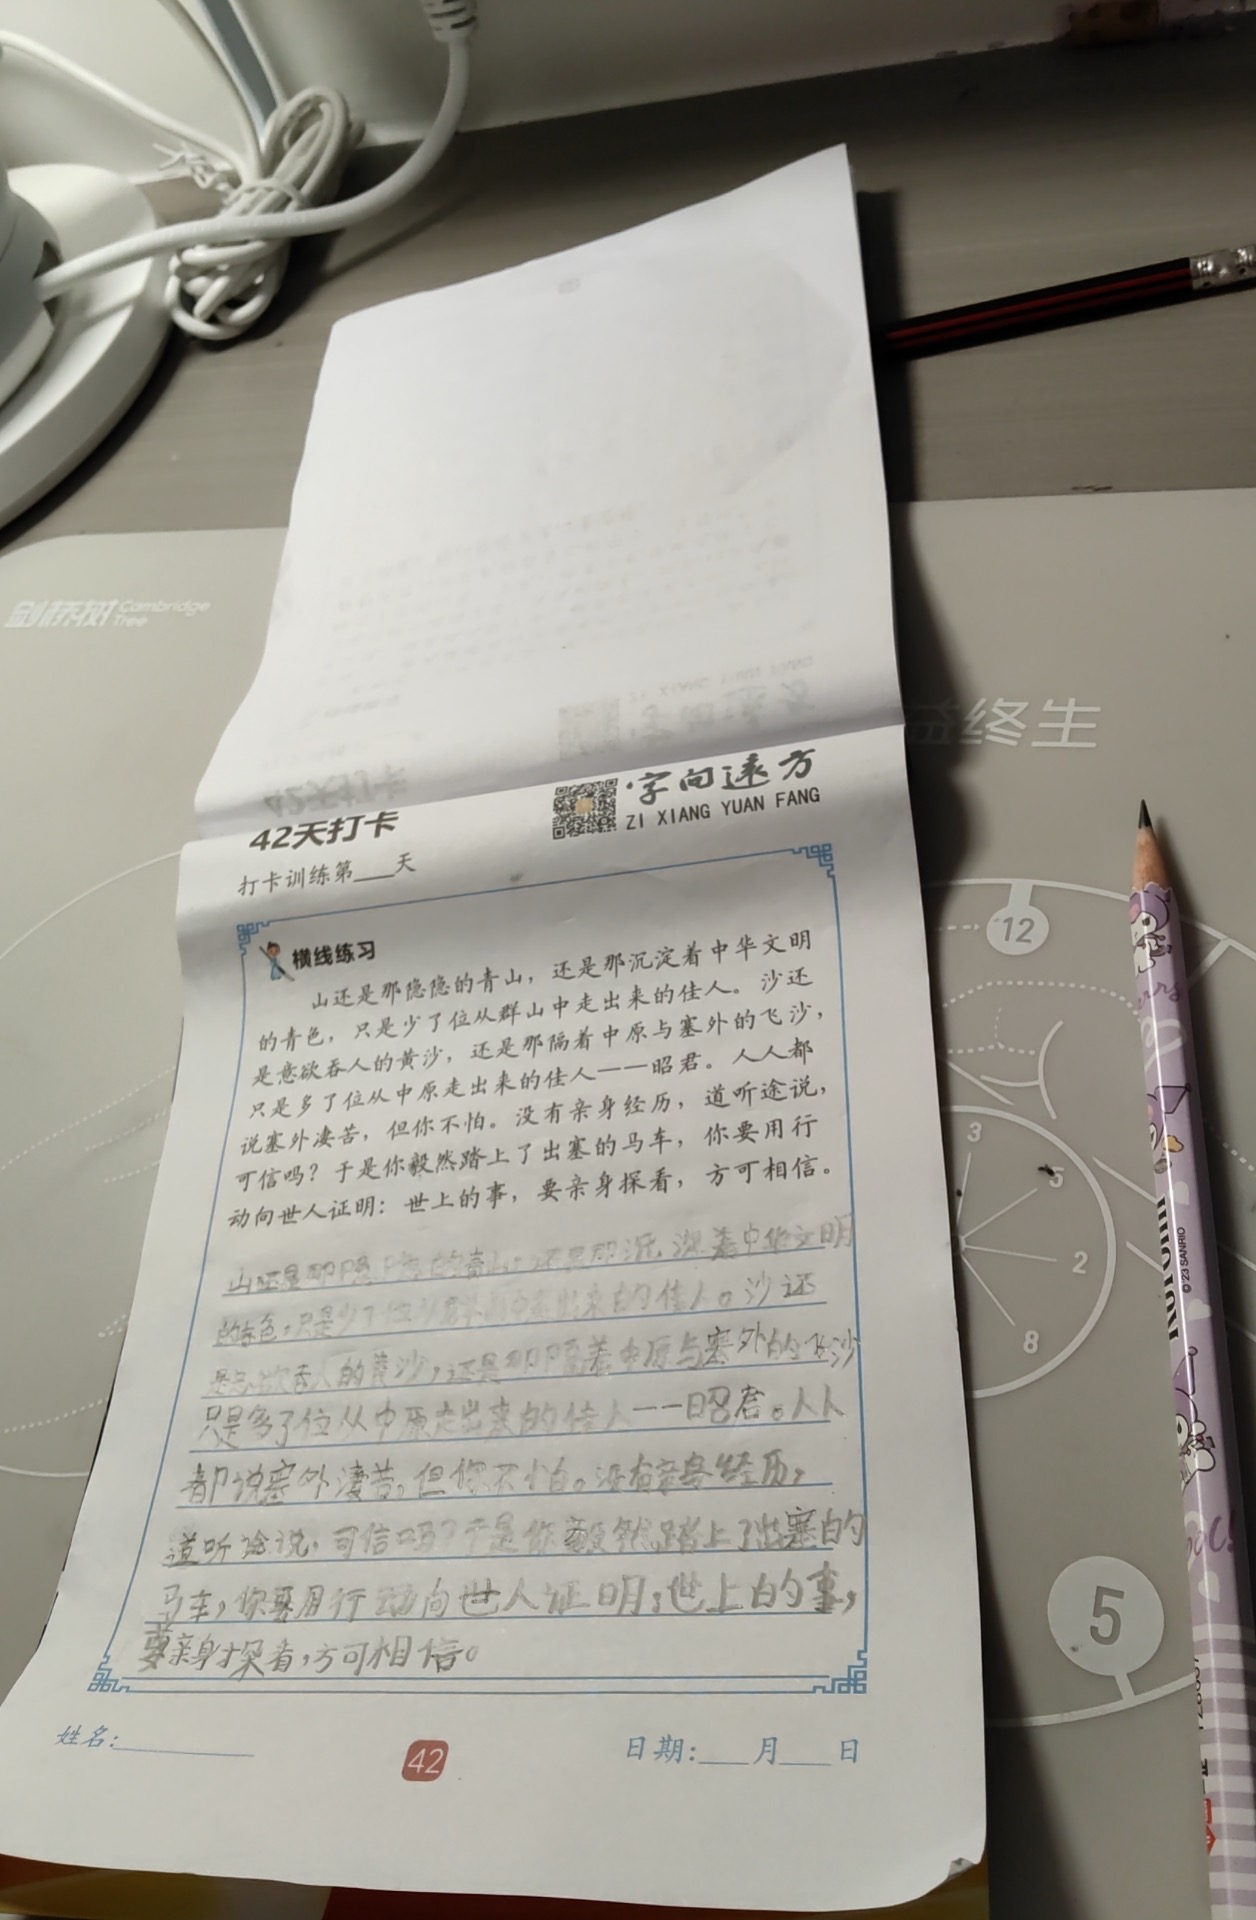 剑桥树 Cambridge Tree
益终生
42天打卡
字向远方
ZI XIANG YUAN FANG
打卡训练第___天
横线练习
山还是那隐隐的青山，还是那沉淀着中华文明
的青色，只是少了位从群山中走出来的佳人。沙还
是意欲吞人的黄沙，还是那隔着中原与塞外的飞沙，
只是多了位从中原走出来的佳人——昭君。人人都
说塞外凄苦，但你不怕。没有亲身经历，道听途说，
可信吗？于是你毅然踏上了出塞的马车，你要用行
动向世人证明：世上的事，要亲身探看，方可相信。
山还是那隐隐的青山，还是那沉淀着中华文明
的青色，只是少了位从群山中走出来的佳人。沙还
是意欲吞人的黄沙，还是那隔着中原与塞外的飞沙
只是多了位从中原走出来的佳人——昭君。人人
都说塞外凄苦，但你不怕。没有亲身经历，
道听途说，可信吗？于是你毅然踏上了出塞的
马车，你要用行动向世人证明：世上的事，
要亲身探看，方可相信。
姓名：
42
日期：___月___日
12
3
5
2
8
5
KUROMI
© '23 SANRIO